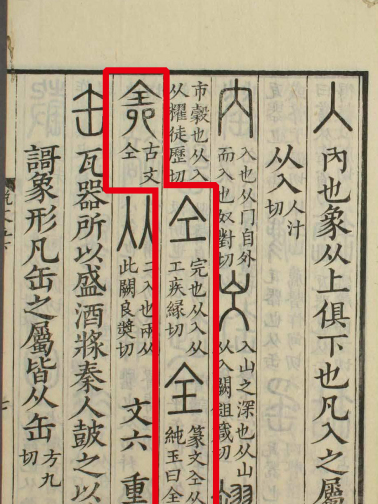 入內也象从上俱下也凡入之屬
从入人汁切
內入也从冂自外而入也奴對切入山之深也从山从入闕鉏箴切
市穀也从入从䊮徒歷切仝完也从入从工疾緣切全篆文仝从純玉曰全
古文仝从二入也兩从此闕良奬切文六重
缶瓦器所以盛酒漿秦人鼓之以
謌象形凡缶之屬皆从缶方九切